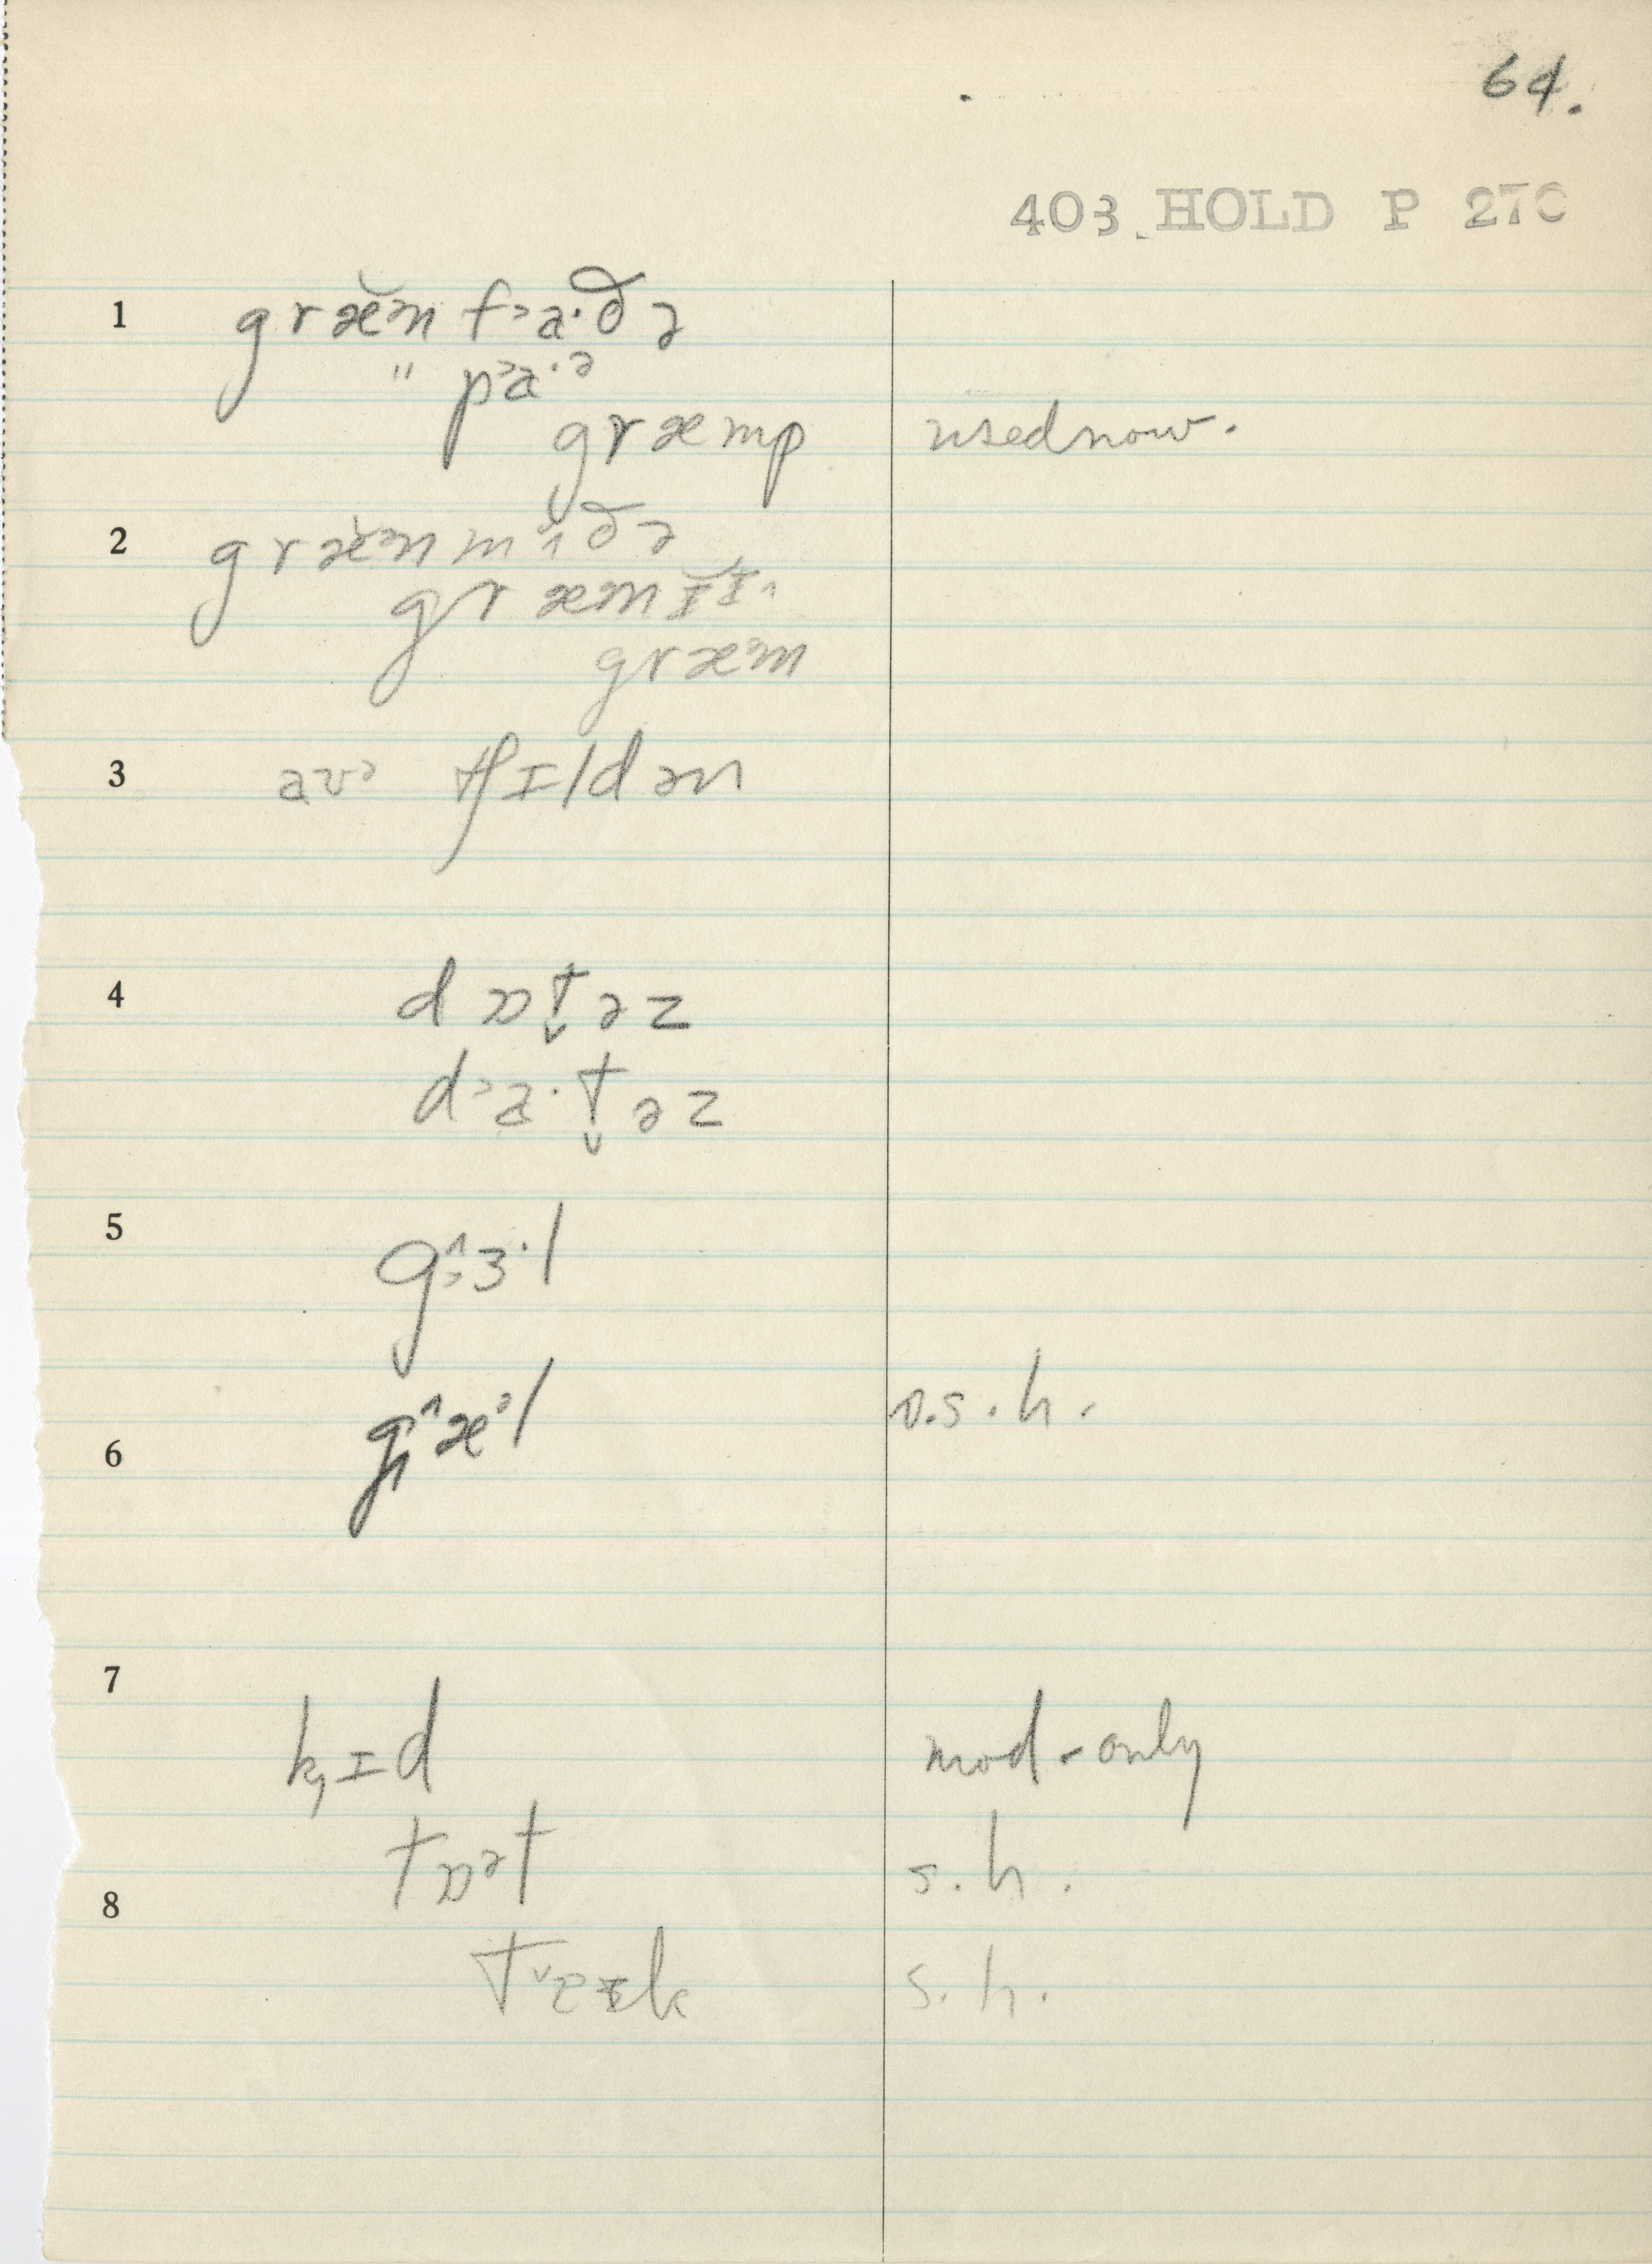 64.
403 HOLD P 270
1 græ̆ᵊn fᵓa·ðə
" pᵓa·ᵊ
græmp used now.
2 græ̆ᵊn mᶺðə
græmɪɪ
græᵊm
3 avᵊ tʃɪldən
4 dɒt̬əz
dᵓa·t̬əz
5 gɜ·l
6 gæᵊl s.h.
7 kɪd mod-only
tɒᵊt s.h.
8 teɪk s.h.